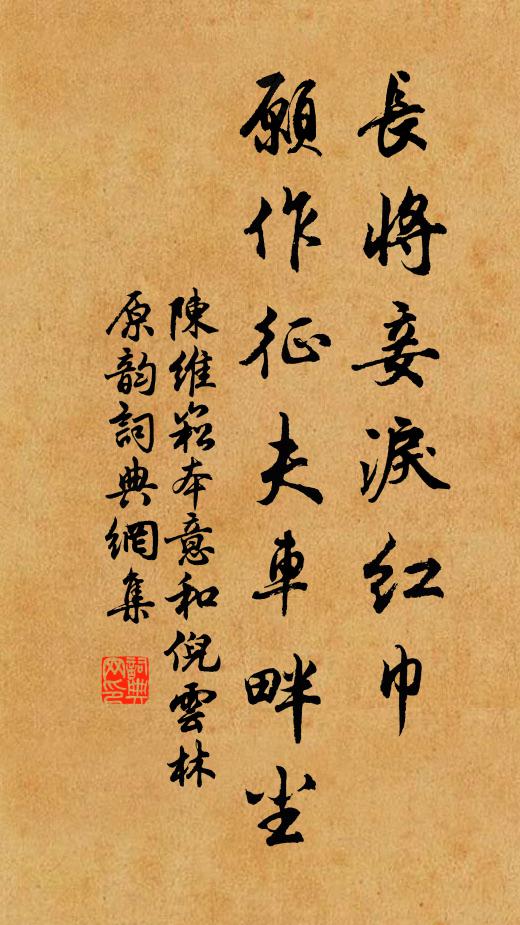 長將妾淚紅巾
願作征夫車畔塵
陳維崧本意和倪雲林
原韵詞典網集
詞典网印